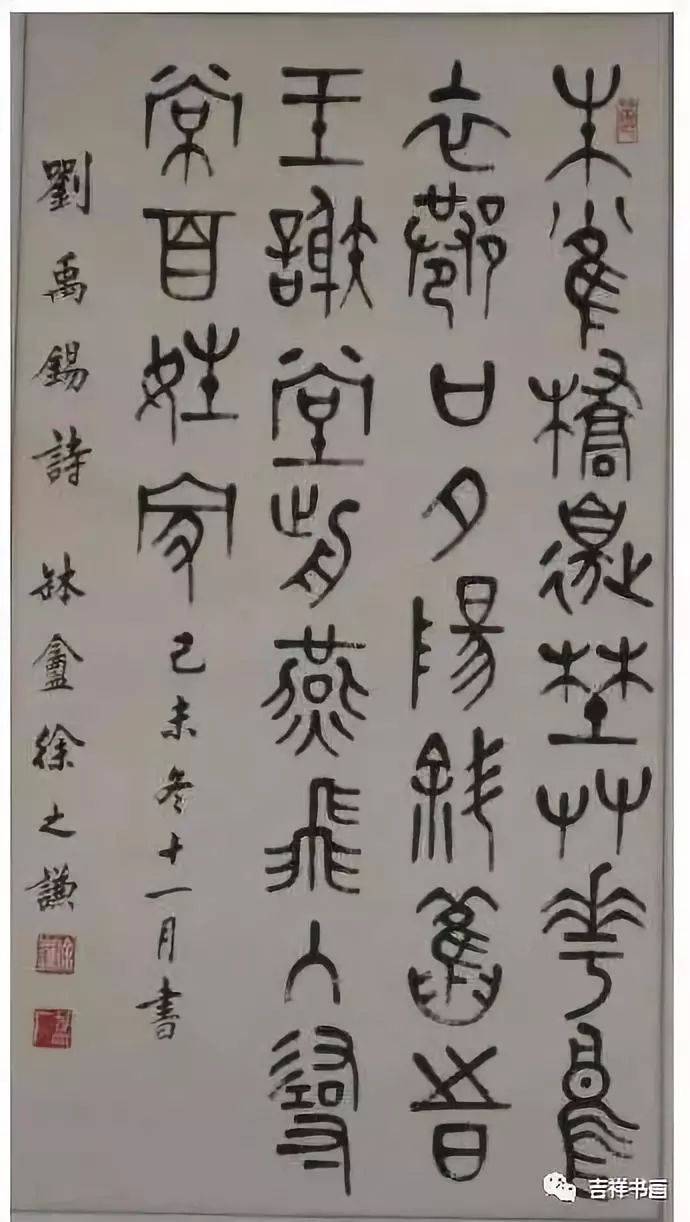 朱雀橋邊埜艸華烏
衣巷口夕陽斜舊旹
王謝堂前燕飛入尋
常百姓家 己未冬十一月書
劉禹錫詩 缽盦徐之謙
吉祥书画